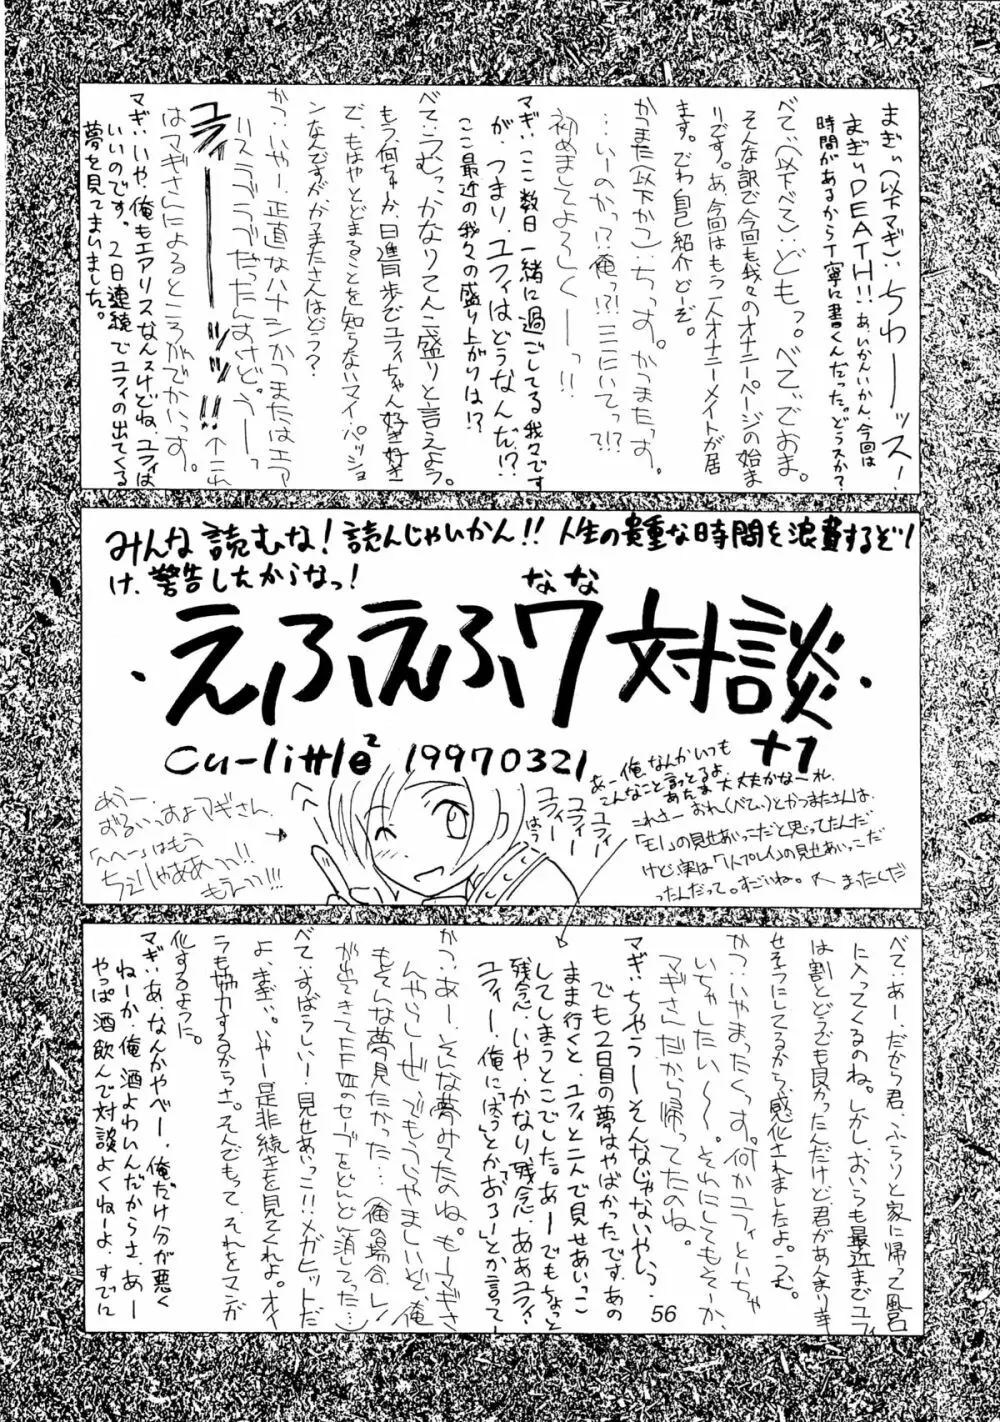 まぎぃ(以下マギ)：ちわーーッス！
まぎぃDEATH!!あいかんいかん、今回は
時間があるから丁寧に書くんだった。どぅスか？
べて(以下べて)：どもっ。べてでおま。
そんな訳で今回も我々のオナニーページの始ま
りです。あ、今回はもう一人オナニーメイトが居
ます。でわ自己紹介どーぞ。
かつまた(以下かつ)：ちっす。かつまたっす。
…いーのかっ!?俺っ!?ここにいてっ?!?
初めましてよろしくーーっ!!
マギ：ここ数日一緒に過ごしてる我々です
が、つまり、ユフィはどうなんだ!?
ここ最近の我々の盛り上がりは!?
べて：うむっ、かなりてんこ盛りと言えよう。
もう、何ちゅーか、日進月歩でユフィちゃん好き好き
で、もはやとどまることを知らないマイ・パッショ
ンなんですが、かつまたさんはどう？
かつ：いやー、正直なハナシかつまたはエア
リスラブラブだったんすけど。うーーっ
はマギさんによるところがでかいっす。
ユフィーーーーッッ!!↑これ
マギ：いや、俺もエアリスなんスけどね、ユフィは
いいのです。2日連続でユフィの出てくる
夢を見てまいました。
みんな読むな！読んじゃいかん!!人生の貴重な時間を浪費するぞ!
け、警告したからなっ！
なな
・えふえふ7対談・
+1
Cu-little² 19970321
あぅー、
ずるいっすよマギさん。
「へへー」はもう
ちぇりゃああっっ!!
もえっっ!!!
へへ
ユフィー
ユフィー
ユフィー
はぅ
あー俺なんかいつも
こんなこと言っとるよ。
あたま大丈夫かな～れ
これさーおれ(べて)とかつまたさんは、
「モノ」の見せあいっこだと思ってたんだ
けど実は「ソノプレイ」の見せあいっこだ
ったんだって。すごいね。へ またくだ
べて：あー、だから君、ふらりと家に帰って風呂
に入ってくるのね。しかし、おいらも最近までユフィ
は割とどうでも良かったんだけど君があんまり幸
せそうにしてるから、感化されましたよ。うむ。
かつ：いやまったくっす。何かユフィといちゃ
いちゃしたい～～。それにしてもそーか、
マギさんだから帰ってたのね。
マギ：ちゃうーーそんなじゃないやいっ。
でも2日目の夢はやばかったです。あの
まま行くと、ユフィと二人で見せあいっこ
してしまうとこでした。あーーでもちょっと
残念、いや、かなり残念。ああユフィ、
ユフィーー、俺に「はぅっ」とか「おろー」とか言って〜
かつ：あー、そんな夢みてたのね。もーマギさ
んやらしーぜ。でもうらやましいど、俺
もそんな夢見たかった…(俺の場合、レノ
が出てきてFFⅦのセーブをどんどん消してった…)
べて：すばらしいー！見せあいっこ!!メガヒットだ
よ、まぎぃ。いやー是非続きを見てくれよ。オイ
ラも協力するからさ。そんでもって、それをマンガ
化するように。
マギ：あ、なんかやべー、俺だけ分が悪く
ねーか、俺、酒よわいんだからさ、あー
やっぱ酒飲んで対談よくねーよ、すでに
56